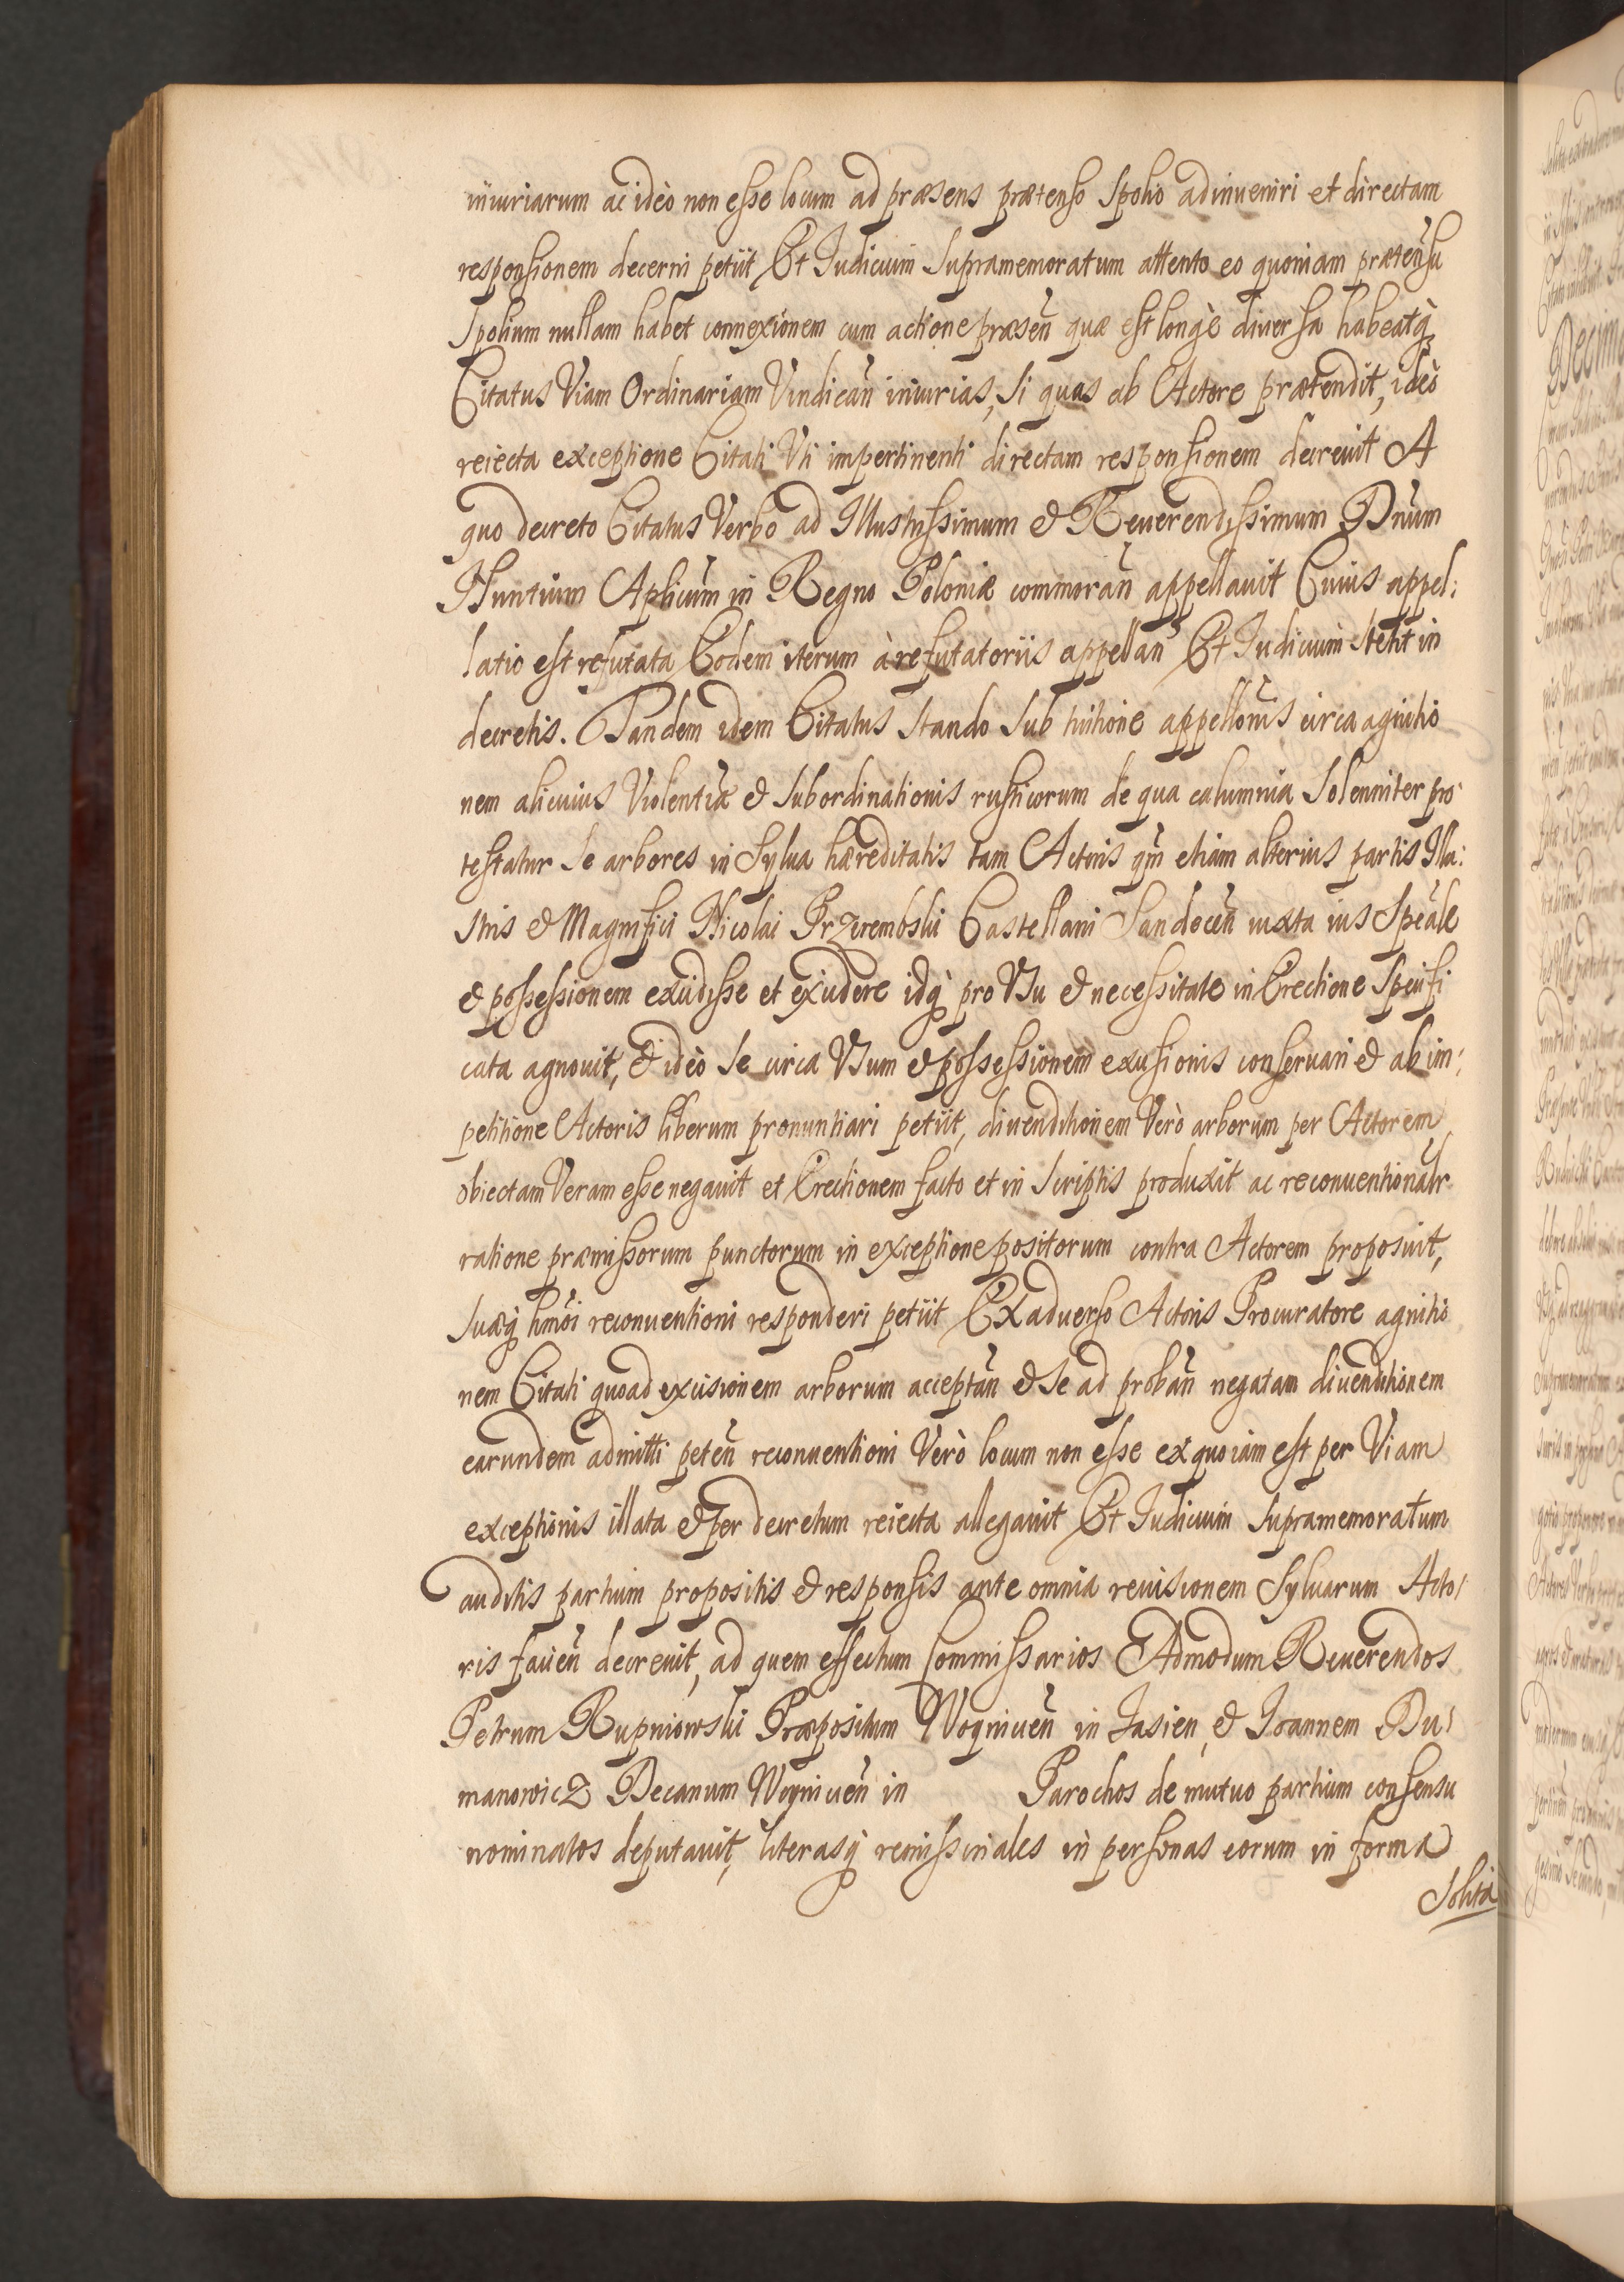 iniuriarum ac ideò non esse locum ad præsens prætenso Spolio adinueniri et directam
responsionem decerni petiit Et Iudicium Supramemoratum attento eo quoniam prætensũ
Spolium nullam habet connexionem cum actione præseñ quæ est longè diuersa habeatq̃
Citatus Viam Ordinariam Vindicañ iniurias, si quas ab Actore prætendit, ideò
reiecta exceptione Citati Vti impertinenti directam responsionem decreuit A
quo decreto Citatus Verbo ad Illustrissimum & Reuerendissimum Dñum
Nuntium Aplicũm in Regno Poloniæ commorañ appellauit Cuius appel:
latio est refutata Eodem iterum à refutatoriis appellañ Et Iudicium stetit in
decretis. Tandem idem Citatus stando sub tuitione appellõnis circa agnitio
nem alicuius Violentiæ & subordinationis rusticorum de qua calumnia Solenniter pro
testatur se arbores in Sylua hæreditatis tam Actoris qm̃ etiam alterius partis Illu:
stris & Magnifici Nicolai Przerembski Castellani Sandoceñ iuxta ius Speãle
& possessionem excidisse et excidere idq̃ pro Vsu & necessitate in Erectione Specifi
cata agnouit, & ideò se circa Vsum & possessionem excisionis conseruari & ab im:
petitione Actoris liberum pronuntiari petiit, diuenditionem Verò arborum per Actorem
obiectam Veram esse negauit et Erectionem facto et in Scriptis produxit ac reconuentionalr
ratione præmissorum punctorum in exceptione positorum contra Actorem proposuit,
suæq̃ hmõi reconuentioni responderi petiit Ex aduerso Actoris Procuratore agnitio
nem Citati quoad excisionem arborum acceptañ & se ad probañ negatam diuenditionem
earundem admitti peteñ reconuentioni Verò locum non esse ex quo iam est per Viam
exceptionis illata & per decretum reiecta allegauit Et Iudicium supramemoratum
auditis partium propositis & responsis ante omnia reuisionem Syluarum Acto/
ris facieñ decreuit, ad quem effectum Commissarios Admodum Reuerendos
Petrum Rupniowski Præpositum Woynicueñ in Jasien, & Joannem Du/
manowicz Decanum Woynicueñ in Parochos de mutuo partium consensu
nominatos deputauit, literasq̃ remissoriales in personas eorum in forma
Solita